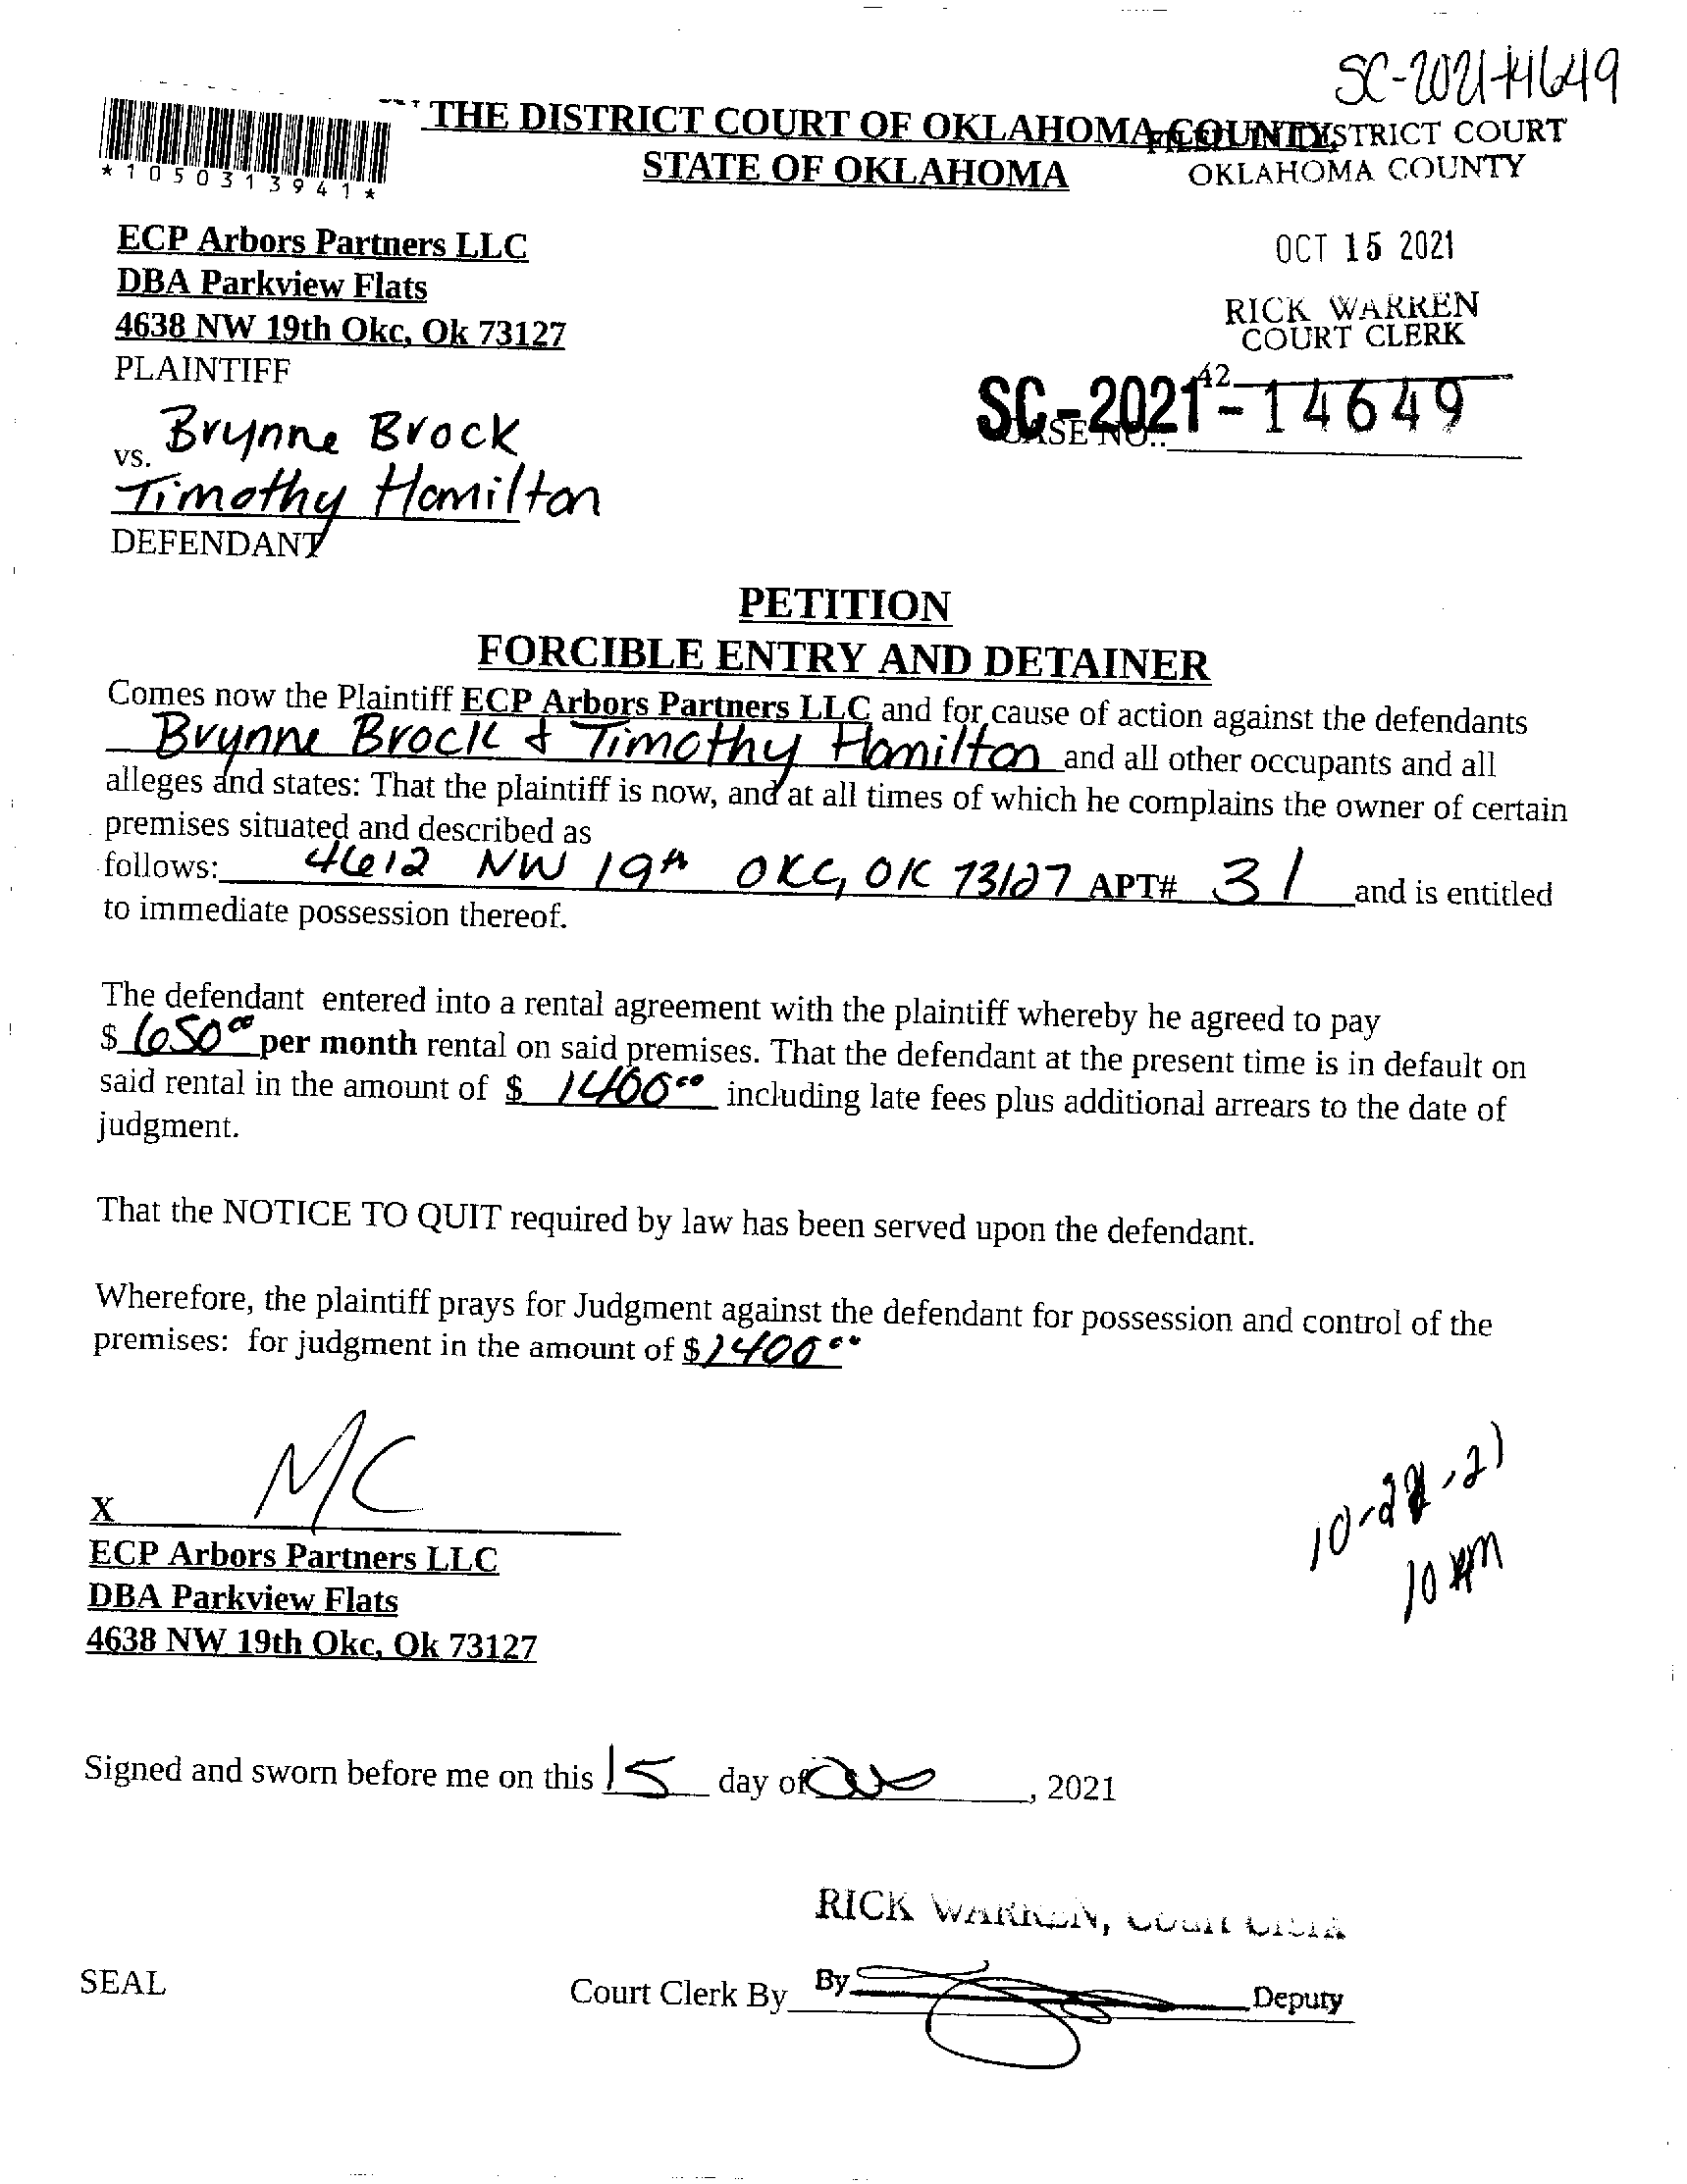 SC-2021-14649
THE DISTRICT COURT OF OKLAHOMA COUNTY,
STATE OF OKLAHOMA
*1050313941*
FILED IN DISTRICT COURT
OKLAHOMA COUNTY
ECP Arbors Partners LLC
DBA Parkview Flats
4638 NW 19th Okc, Ok 73127
PLAINTIFF
OCT 15 2021
RICK WARREN
COURT CLERK
42
SC-2021-14649
CASE NO.:
vs. Brynne Brock
Timothy Hamilton
DEFENDANT
PETITION
FORCIBLE ENTRY AND DETAINER
Comes now the Plaintiff ECP Arbors Partners LLC and for cause of action against the defendants
Brynne Brock & Timothy Hamilton and all other occupants and all
alleges and states: That the plaintiff is now, and at all times of which he complains the owner of certain
premises situated and described as
follows: 4612 NW 19th OKC, OK 73127 APT# 31 and is entitled
to immediate possession thereof.
The defendant entered into a rental agreement with the plaintiff whereby he agreed to pay
$ 650.00 per month rental on said premises. That the defendant at the present time is in default on
said rental in the amount of $ 1400.00 including late fees plus additional arrears to the date of
judgment.
That the NOTICE TO QUIT required by law has been served upon the defendant.
Wherefore, the plaintiff prays for Judgment against the defendant for possession and control of the
premises: for judgment in the amount of $1400.00
X MC
ECP Arbors Partners LLC
DBA Parkview Flats
4638 NW 19th Okc, Ok 73127
10 AM
Signed and sworn before me on this 15 day of , 2021
RICK WARREN, Court Clerk
SEAL
Court Clerk By By Deputy